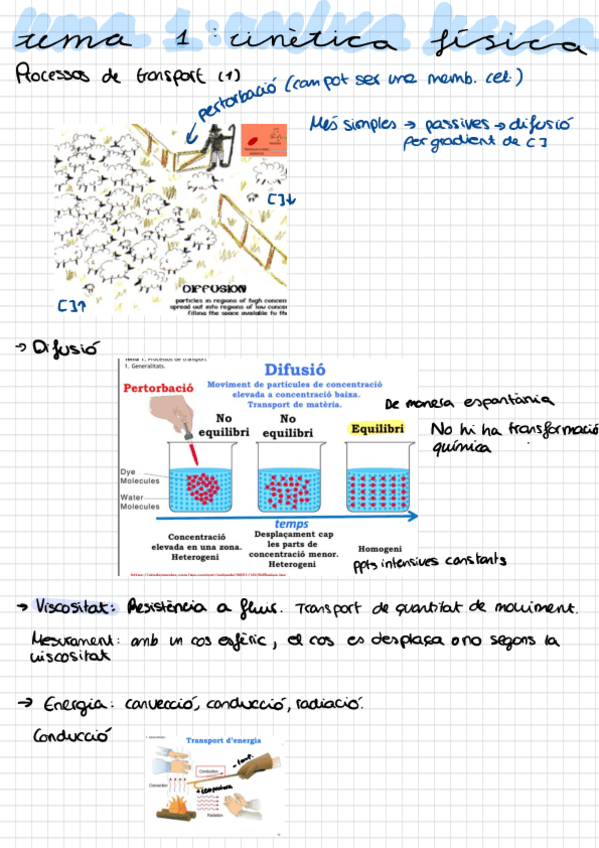 tema 1: cinètica física
Processos de transport (1)
pertorbació (com pot ser una memb. cel.)
Més simples → passives → difusió
per gradient de C]
C]↓
DIFFUSION
particles in regions of high concen
spread out into regions of low concen
filling the space available to th
C]↑
→ Difusió
Tema 1. Processos de transport
1. Generalitats.
Difusió
Pertorbació
Moviment de partícules de concentració
elevada a concentració baixa.
Transport de matèria.
De manera espontània
No hi ha transformació
química
No
equilibri
No
equilibri
Equilibri
Dye
Molecules
Water
Molecules
temps
Concentració
elevada en una zona.
Heterogeni
Desplaçament cap
les parts de
concentració menor.
Heterogeni
Homogeni
ppts intensives constants
→ Viscositat: Resistència a fluir. Transport de quantitat de moviment.
Mesurament: amb un cos esfèric, el cos es desplaça o no segons la
viscositat
→ Energia: convecció, conducció, radiació.
Conducció
Transport d'energia
- temp.
Conduction
Convection
+ temperatura
Radiation